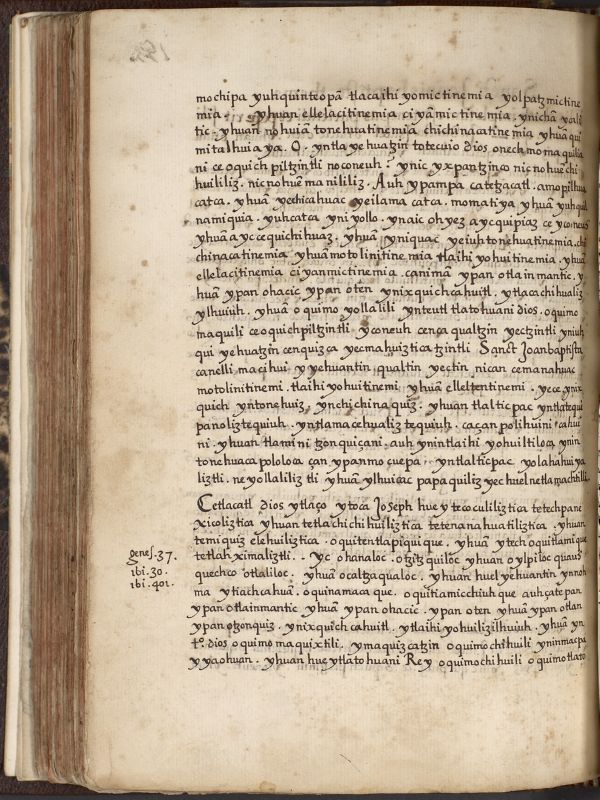 mochipa yuhquinteopā tlacaihi yomictinemia yolpatzmictine
mia . yhuan ellelacitinemia ciyāmictinemia . ynichā ycali
tic . yhuan nohuiā tonehuatinemia chichinacatinemia yhuā qui
mitalhuiaya . O . yntla yehuatzin totecuio Dios . onechmomaquilia
ni ceoquich piltzintli noconeuh ? ynic yxpantzinco nicnohuēchi
huililiz . nicnohuēmanililiz . Auh ypampa catetzacatl . amopilhua
catca . yhuā yechicahuac yeilama catca . momatiya yhuā yuhqui
namiquia . yuhcatca yniyollo . ynaic ohyez aycquipiaz ce yconeuh
yhuā aycce quichihuaz . yhuā yniquac yeiuh tonehuatinemia . chi
chinacatinemia yhuā motolinitinemia tlaihiyohuitinemia . yhuā
ellelacitinemia ciyanmictinemia . canimā ypan otlainmantic . y
huā ypan ohacic ypan oten ynixquichcahuitl . ytlacachihualiz
ylhuiuh . yhuā oquimoyollalili ynteutl tlatohuani dios . oquimo
maquili ceoquichpiltzintli yconeuh cenca qualtzin yectzintli yniuh
qui yehuatzin cenquizca yecmahuiztica tzintli Sanct Joan baptista
canelli macihui yyehuantin qualtin yectin nican cemanahuac
motolinitinemi . tlaihiyohuitinemi yhuā elleltentinemi . yece ynix
quich yntonehuiz . ynchichinaquiz . yhuan tlalticpac yntlatequi
panoliztequiuh . yntlamacehualiz tequiuh . caçan polihuini cahui
ni . yhuan tlamini tzonquiçani . auh ynintlaihiyohuiltiloca ynin
tonehuaca pololoca çan ypanmocuepa . yntlalticpac yolahahuiya
liztli . neyollaliliztli yhuā ylhuicac papaquiliz yechuelnetlamachtilli
Cetlacatl dios ytlaço ytoca Joseph huey tecoculiliztica tetechpane
xicoliztica yhuan tetlachichihuiliztica tetenanahuatiliztica . yhuan
temiquiz elehuiliztica . oquitentlapiquique . yhuā ytech oquitlamique
tetlahximaliztli . yc ohanaloc . otzitzquiloc yhuan oylpiloc quauh
quechco otlaliloc . yhuā ocaltzaqualoc . yhuan huel yehuantin ynnoh
ma ytiachcahuā . oquinamacaque . oquitiamicchiuhque auhçatepan
ypan otlainmantic yhuā ypan ohacic . ypan oten yhuā ypan otlan
ypan otzonquiz . ynixquichcahuitl . ytlaihiyohuilizilhuiuh . yhuā yn
tº dios oquimomaquixtili . ymaquizcatzin oquimochihuili yninmacpa
yyaohuan . yhuan huey tlatohuani Rey oquimochihuili oquimotlato
genes . 37 .
ibi . 30 .
ibi . 401 .